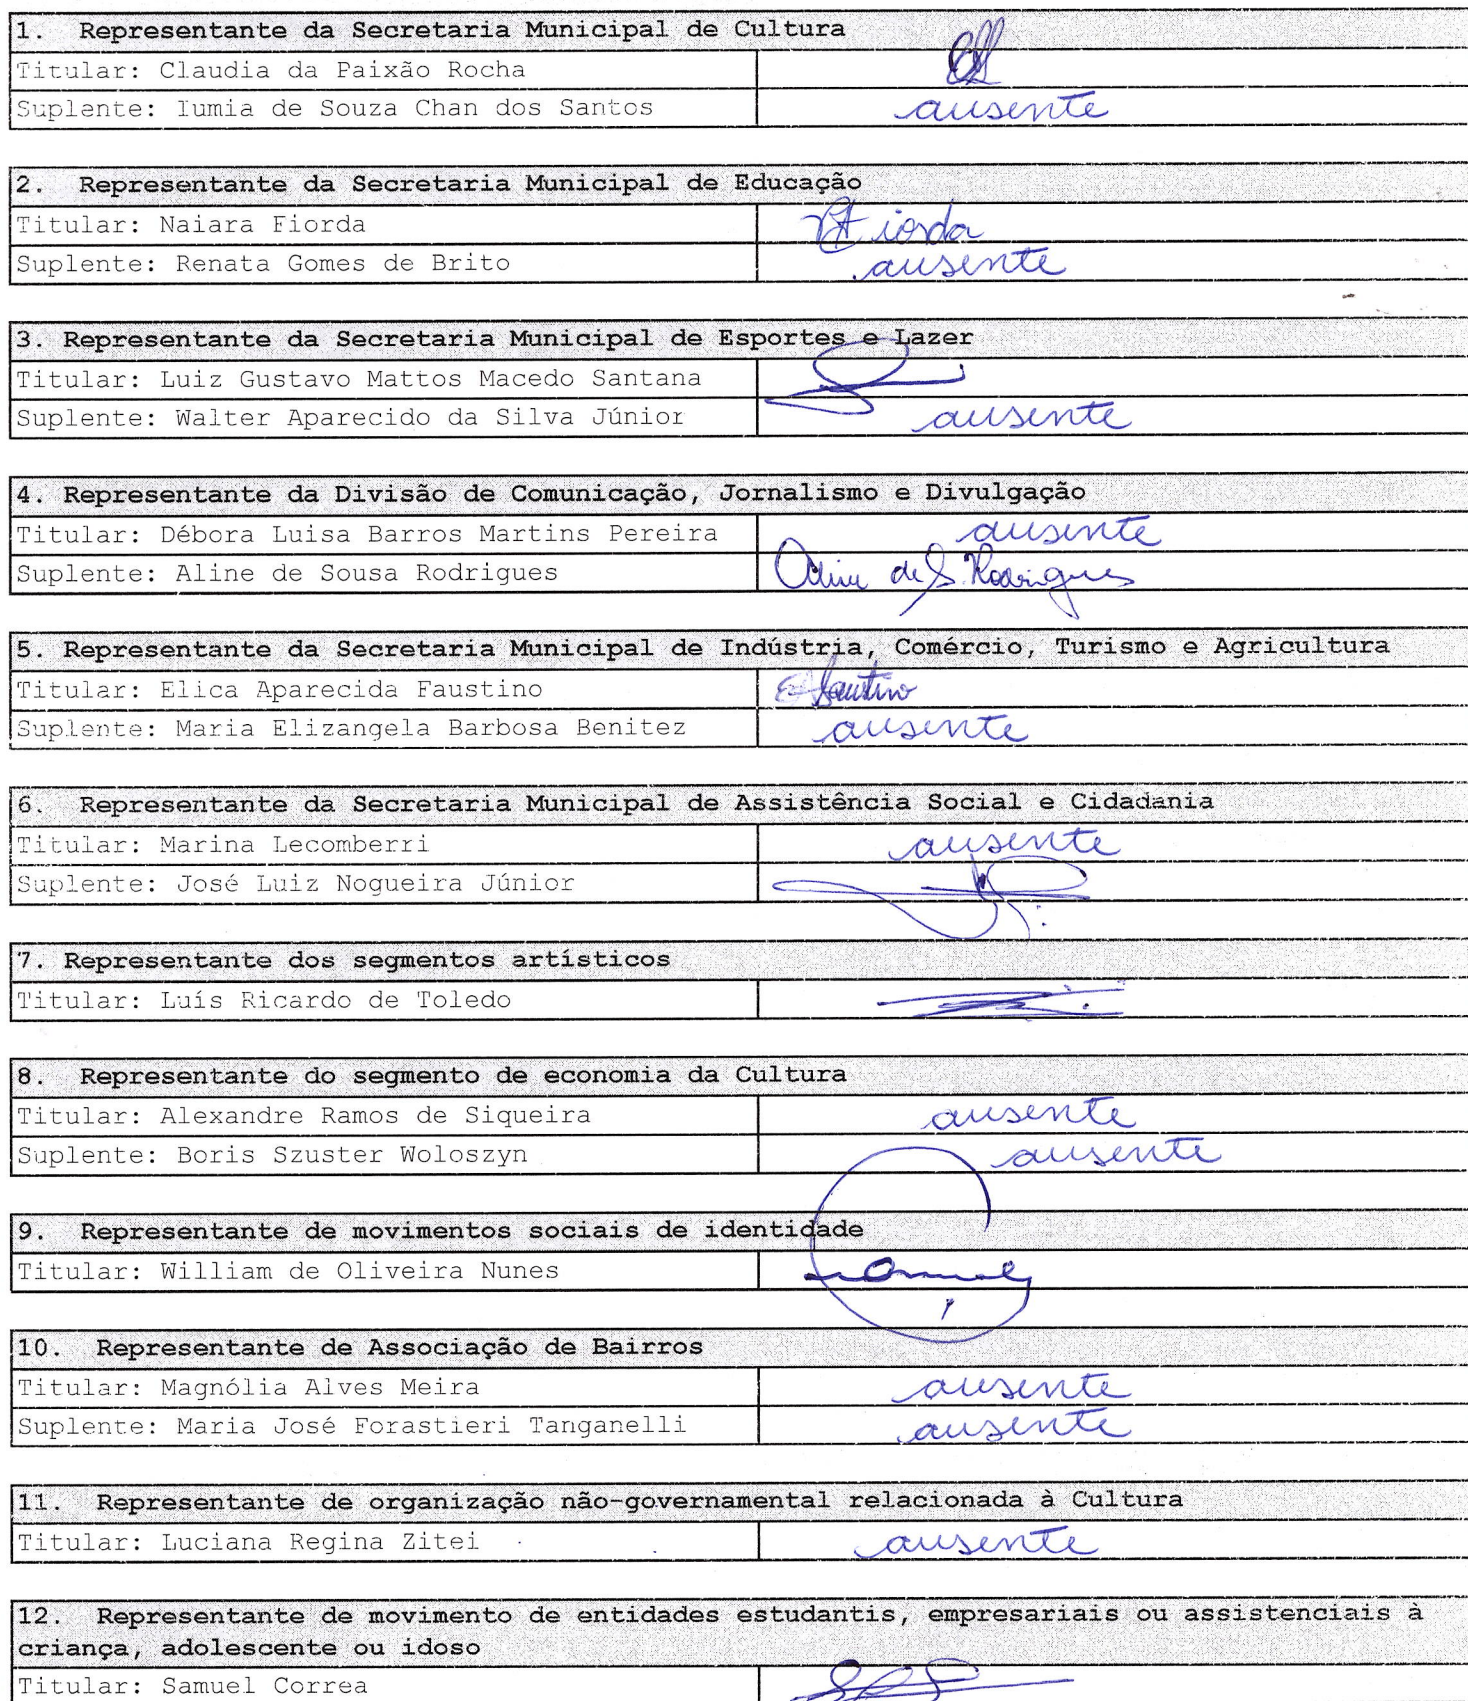 1. Representante da Secretaria Municipal de Cultura
Titular: Claudia da Paixão Rocha
Suplente: Iumia de Souza Chan dos Santos ausente
2. Representante da Secretaria Municipal de Educação
Titular: Naiara Fiorda NFiorda
Suplente: Renata Gomes de Brito ausente
3. Representante da Secretaria Municipal de Esportes e Lazer
Titular: Luiz Gustavo Mattos Macedo Santana
Suplente: Walter Aparecido da Silva Júnior ausente
4. Representante da Divisão de Comunicação, Jornalismo e Divulgação
Titular: Débora Luisa Barros Martins Pereira ausente
Suplente: Aline de Sousa Rodrigues Aline de S. Rodrigues
5. Representante da Secretaria Municipal de Indústria, Comércio, Turismo e Agricultura
Titular: Elica Aparecida Faustino Faustino
Suplente: Maria Elizangela Barbosa Benitez ausente
6. Representante da Secretaria Municipal de Assistência Social e Cidadania
Titular: Marina Lecomberri ausente
Suplente: José Luiz Nogueira Júnior
7. Representante dos segmentos artísticos
Titular: Luís Ricardo de Toledo
8. Representante do segmento de economia da Cultura
Titular: Alexandre Ramos de Siqueira ausente
Suplente: Boris Szuster Woloszyn ausente
9. Representante de movimentos sociais de identidade
Titular: William de Oliveira Nunes
10. Representante de Associação de Bairros
Titular: Magnólia Alves Meira ausente
Suplente: Maria José Forastieri Tanganelli ausente
11. Representante de organização não-governamental relacionada à Cultura
Titular: Luciana Regina Zitei ausente
12. Representante de movimento de entidades estudantis, empresariais ou assistenciais à
criança, adolescente ou idoso
Titular: Samuel Correa